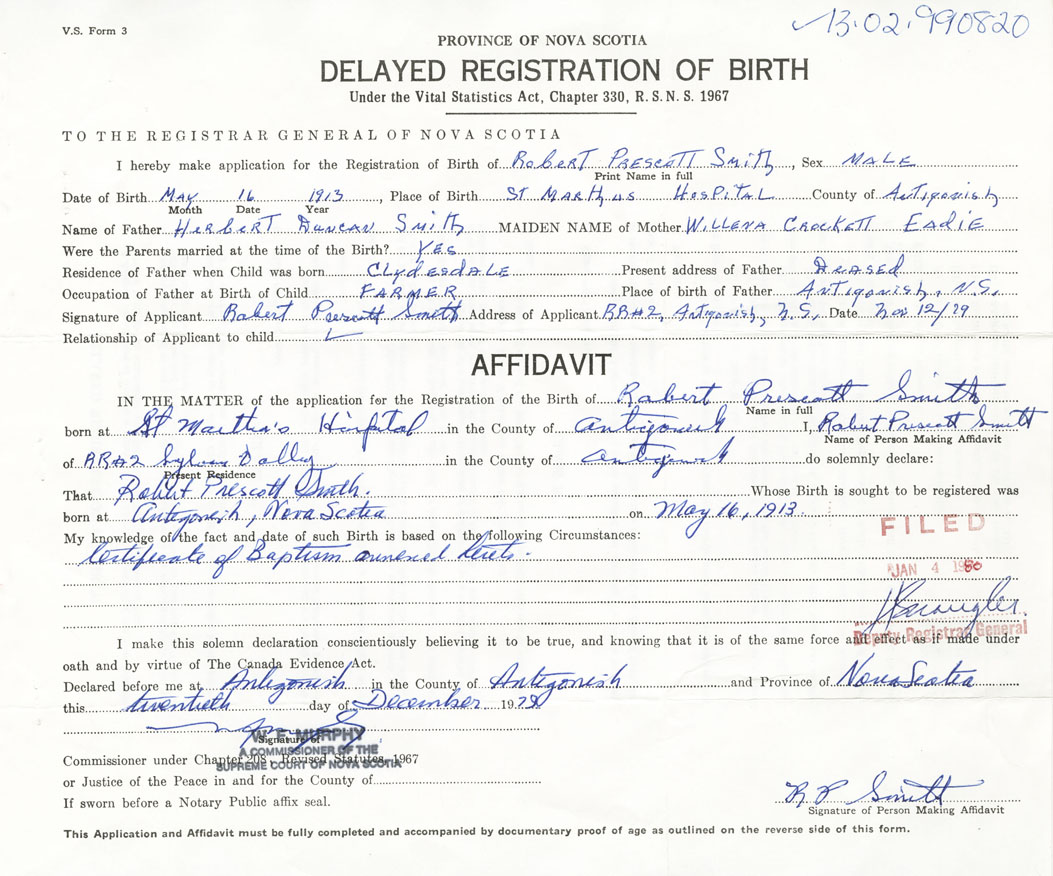 V.S. Form 3
13·02·990820
PROVINCE OF NOVA SCOTIA
DELAYED REGISTRATION OF BIRTH
Under the Vital Statistics Act, Chapter 330, R. S. N. S. 1967
TO THE REGISTRAR GENERAL OF NOVA SCOTIA
I hereby make application for the Registration of Birth of Robert Prescott Smith, Sex MALE
Print Name in full
Date of Birth May 16 1913, Place of Birth St Marthas Hospital County of Antigonish
Month Date Year
Name of Father Herbert Duncan Smith MAIDEN NAME of Mother Willena Crockett Eadie
Were the Parents married at the time of the Birth? Yes
Residence of Father when Child was born Clydesdale Present address of Father Deased
Occupation of Father at Birth of Child FARMER Place of birth of Father Antigonish, N.S.
Signature of Applicant Robert Prescott Smith Address of Applicant RR#2, Antigonish, N.S. Date Nov 12/79
Relationship of Applicant to child
AFFIDAVIT
IN THE MATTER of the application for the Registration of the Birth of Robert Prescott Smith
Name in full
born at St Martha's Hospital in the County of Antigonish I, Robert Prescott Smith
Name of Person Making Affidavit
of RR#2 Sylvan in the County of Antigonish do solemnly declare:
Present Residence
That Robert Prescott Smith. Whose Birth is sought to be registered was
born at Antigonish, Nova Scotia on May 16, 1913
My knowledge of the fact and date of such Birth is based on the following Circumstances:
Certificate of Baptism annexed
FILED
JAN 4 1980
Deputy Registrar General
I make this solemn declaration conscientiously believing it to be true, and knowing that it is of the same force and effect as if made under
oath and by virtue of The Canada Evidence Act.
Declared before me at Antigonish in the County of Antigonish and Province of Nova Scotia
this twentieth day of December 1979
Signature of
W. F. MURPHY
A COMMISSIONER OF THE
SUPREME COURT OF NOVA SCOTIA
Commissioner under Chapter 208, Revised Statutes, 1967
or Justice of the Peace in and for the County of
If sworn before a Notary Public affix seal.
R P Smith
Signature of Person Making Affidavit
This Application and Affidavit must be fully completed and accompanied by documentary proof of age as outlined on the reverse side of this form.